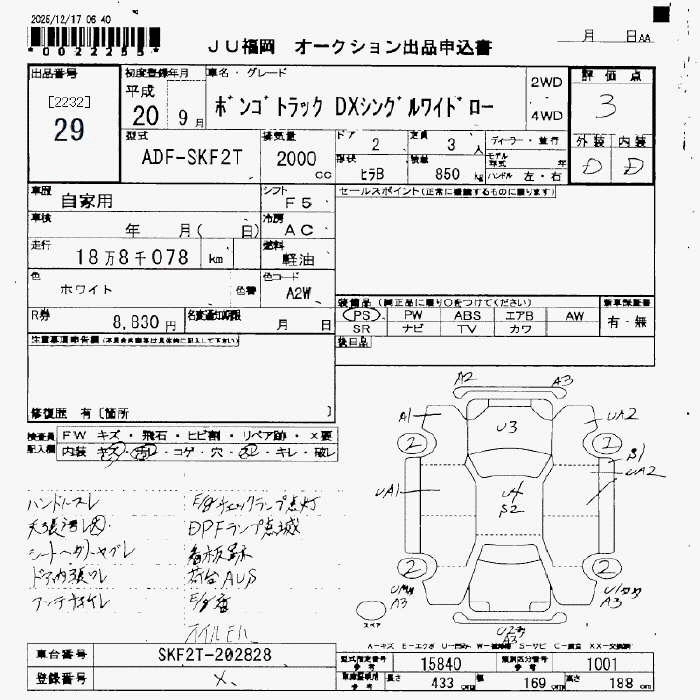 2025/12/17 06 40
*0022255*
JU福岡 オークション出品申込書
月 日 AA
出品番号
[2232]
29
初度登録年月
平成
20 9月
車名・グレード
ボンゴトラック DXシングルワイドロー
2WD
4WD
評価点
3
外装 内装
D D
型式
ADF-SKF2T
排気量
2000
cc
ドア
2
定員
3人
形状
ヒラB
積載
850
kg
ディーラー・並行
モデル
年式
年
ハンドル 左・右
車歴
自家用
シフト
F5
セールスポイント(正常に機能するものに限ります)
車検
年 月( 日)
冷房
AC
走行
18万8千078 km
燃料
軽油
色
ホワイト
色替
色コード
A2W
R券
8,830円
名変通知期限
月 日
装備品 (純正品に限り○をつけてください)
PS PW ABS エアB AW
SR ナビ TV カワ
新車保証書
有・無
後日品
注意事項申告欄
修復歴 有〔箇所 〕
検査員
記入欄
FW キズ・飛石・ヒビ割・リペア跡・×要
内装 キズ・汚レ・コゲ・穴・スレ・キレ・破レ
ハンドルスレ
E/gチェックランプ点灯
DPFランプ点滅
看板跡
荷台AUS
A2 A3
A1 U3 UA2
2 2
B1
UA2
UA1 U4
S2
2 2
A3
A3
スペア
A3
A-キズ E-エクボ
車台番号
SKF2T-202828
登録番号
型式指定番号
参考
15840
類別区分番号
参考
1001
長さ
433 cm
幅
169 cm
高さ
188 cm